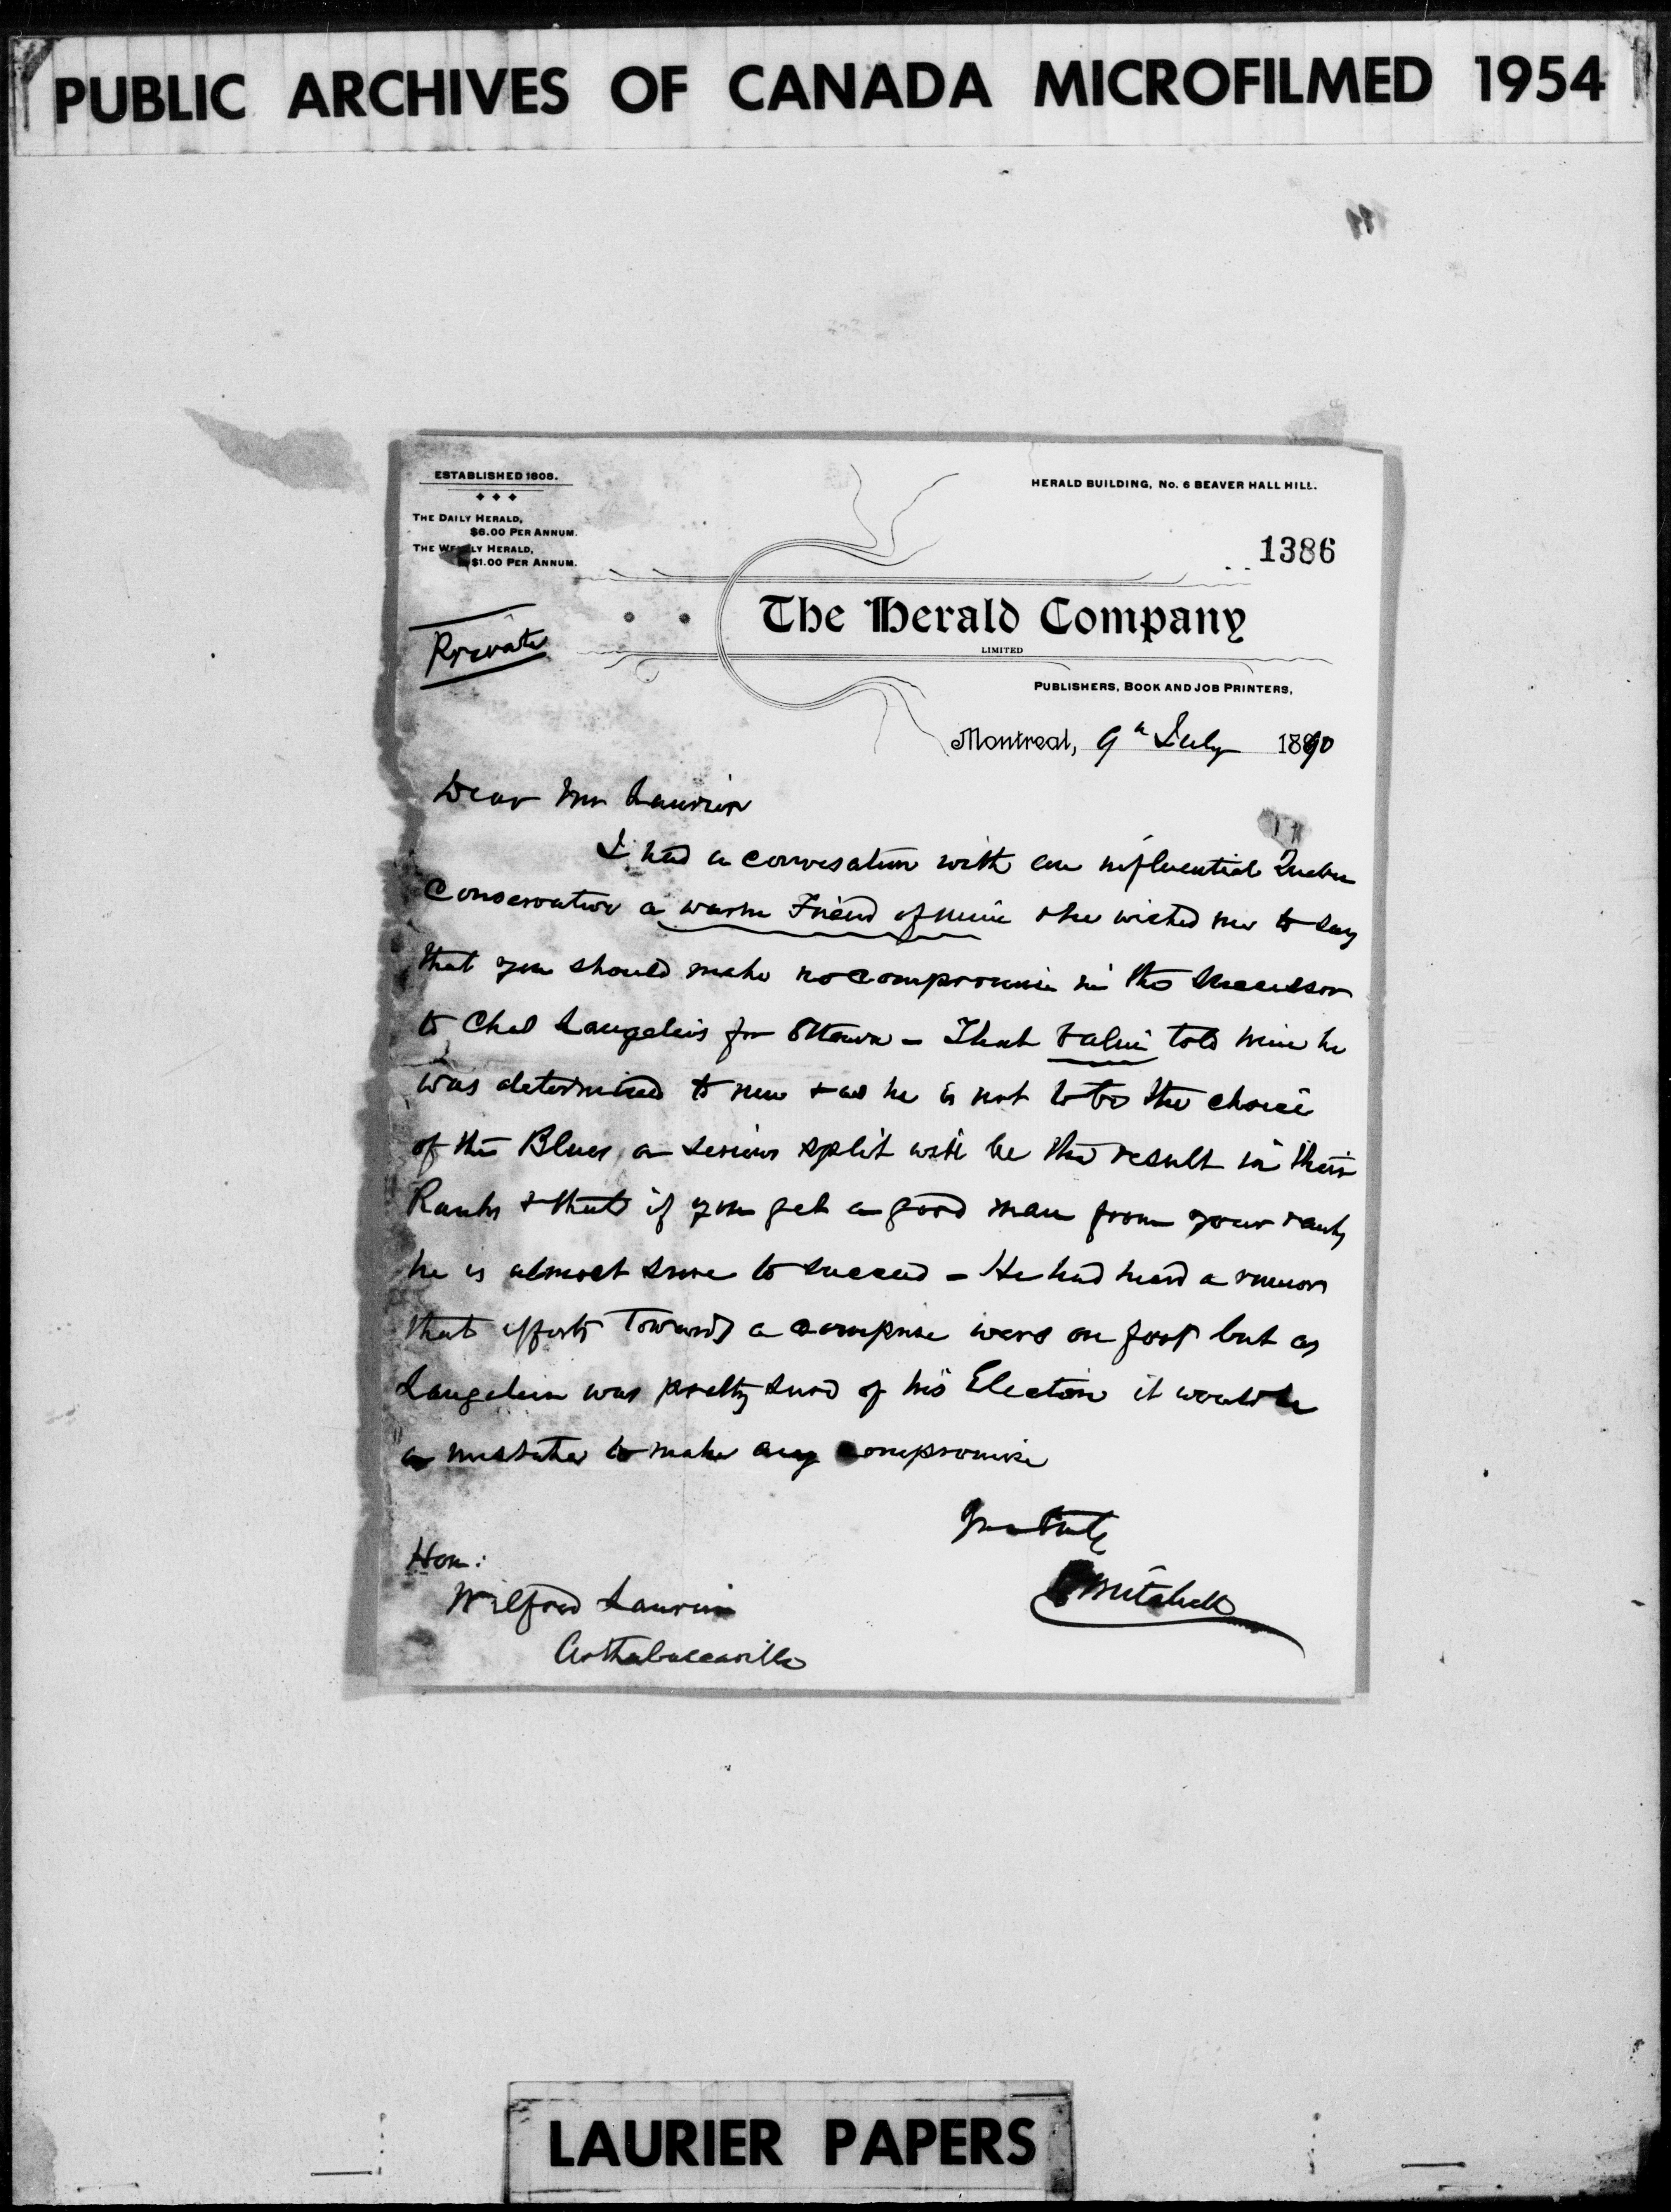 PUBLIC ARCHIVES OF CANADA MICROFILMED 1954
ESTABLISHED 1808.
HERALD BUILDING, No. 6 BEAVER HALL HILL.
THE DAILY HERALD,
$6.00 PER ANNUM.
THE WEEKLY HERALD,
$1.00 PER ANNUM.
1386
The Herald Company
LIMITED
Private
PUBLISHERS, BOOK AND JOB PRINTERS,
Montreal, 9th July 1890
Dear Mr Laurier
I had a conversation with an influential Quebec
Conservative a warm Friend of mine & he wished me to say
that you should make no compromise in the successor
to Chas Langelier for Ottawa - That told him he
was determined to run & as he is not to be the choice
of the Blues a serious split will be the result in their
Ranks & that if you get a good man from your ranks
he is almost sure to succeed - He had heard a rumor
that efforts Towards a comprise were on foot but as
Langelier was pretty sure of his Election it would be
a mistake to make any compromise
Yours Truly
Mitchell
Hon:
Wilfred Laurier
Arthabascaville
LAURIER PAPERS